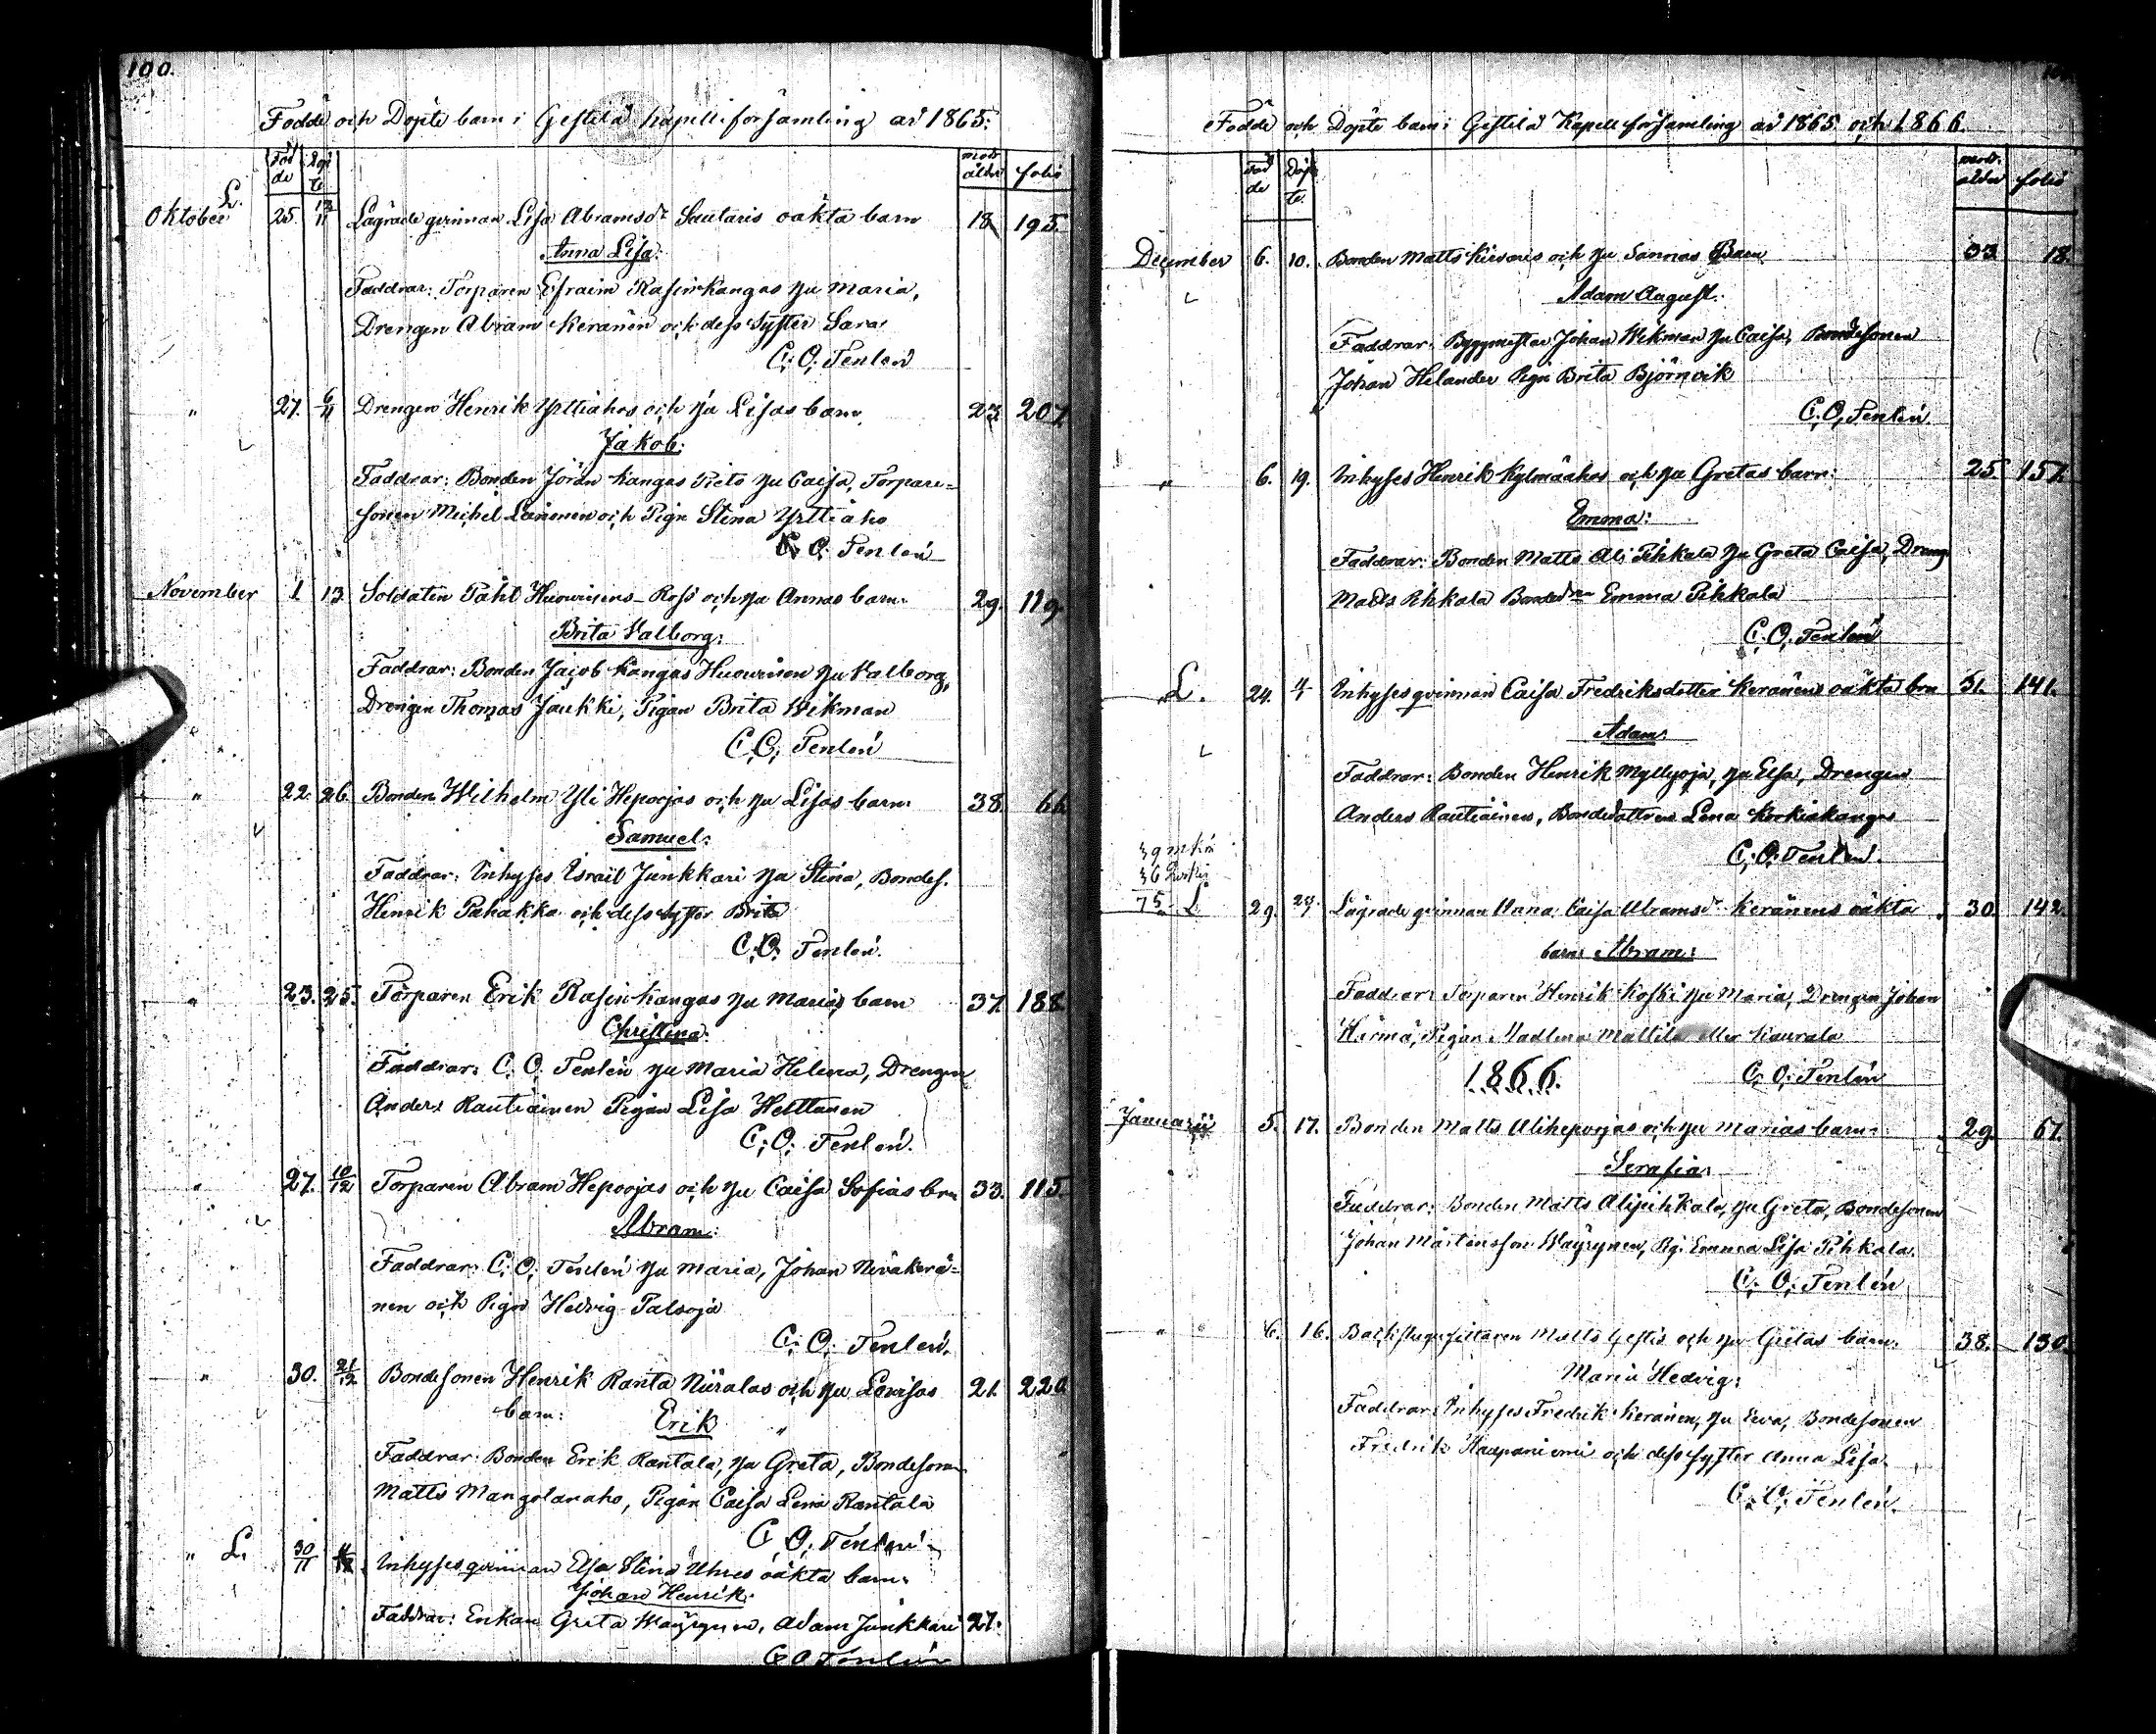 100.
Födde och Döpte barn i Gestilä Kapellförsamling år 1865:
Föd de Döpte mod. ålder folio
Oktober L. 25. 12/11 Lägrade qvinnan Lisa Abramsdr Sautaris oäkta barn 18 195.
Anna Lisa:
Faddrar: Torparen Efraim Rasinkangas hu Maria,
Drengen Abram Keränen och dess Syster Sara
C. O. Tenlén
" 27. 6/11 Drengen Henrik Ylttiahos och hu Lisas barn 23 207.
Jakob:
Faddrar: Bonden Jöran Kangas Pieto hu Caisa, Torpare=
sonen Michel Länonen och Pign Stina Ylttiaho
C. O. Tenlén
November 1 13 Soldaten Påhl Huovinens-Ross och hu Annas barn. 29. 119.
Brita Valborg:
Faddrar: Bonden Jacob Kangas Huovinen hu Valborg,
Drengen Thomas Jaukki, Pigan Brita Wikman
C. O. Tenlén
" 22. 26. Bonden Wilhelm Yli Hepoojas och hu Lisas barn: 38. 66
Samuel:
Faddrar: Inhyses Israil Junkkari hu Stina, Bondes.
Henrik Pahakka och dess syster Brita
C. O. Tenlén.
" 23. 25. Torparen Erik Rasinkangas hu Marias barn 37. 188
Christina:
Faddrar: C. O. Tenlén hu Maria Helena, Drengen
Anders Rautiainen Pigan Lisa Helttunen
C. O. Tenlén.
" 27. 10/12 Torparen Abram Hepoojas och hu Caisa Sofias brn 33. 115.
Abram:
Faddrar: C. O. Tenlén hu Maria, Johan Nevakerä=
nen och Pign Hedvig Palsoja
C. O. Tenlén.
" 30. 21/12 Bondesonen Henrik Ranta Niiralas och hu Lovisas 21. 220
barn: Erik
Faddrar: Bonden Erik Rantala, hu Greta, Bondesonen
Matts Mangolanaho, Pigan Caisa Lena Rantala
C. O. Tenlén
" L. 30/11 Inhysesqvinnan Elsa Stina Uhres oäkta barn.
Johan Henrik:
Faddrar: Enkan Greta Wäyrynen, Adam Junkkari 27.
C O Tenlén
Födde och Döpte barn i Gestilä Kapellförsamling år 1865 och 1866.
Föd de Döpte. mod. ålder folio
December 6. 10. Bonden Matts Kivaris och hu Sannas Barn 33 18.
Adam August:
Faddrar: Byggmestar Johan Wikman hu Caisa, Bondesonen
Johan Helander Pign Brita Björnvik
C. O. Tenlén.
" 6. 19. Inhyses Henrik Kylmäahos och hu Gretas barn: 25. 157.
Emma:
Faddrar: Bonden Matts Ali Pihkala hu Greta Caisa, Dreng
Matts Pihkala Bondedrn Emma Pihkala
C. O. Tenlén
" L. 24. 4/1 Inhysesqvinnan Caisa Fredriksdotter Keränens oäkta brn 31. 141.
Adam:
Faddrar: Bonden Henrik Myllyoja, hu Elsa, Drengen
Anders Rautiainen, Bondedottren Lena Korkiakangas
C. O. Tenlén.
39 mkn
36
75 L 29. Lägrade qvinnan Anna Caisa Abramsdr Keränens oäkta 30. 142.
barn: Abram:
Faddrar: Torparen Henrik Koski hu Maria, Drengen Johan
Härmä, Pigan Madlena Mattila eller Kaurala
1866. C. O. Tenlén
Januarii 5. 17. Bonden Matts Alihepoojas och hu Marias barn: 29. 67.
Serafia:
Faddrar: Bonden Matts Alipihkala, hu Greta, Bondesonen
Johan Mårtensson Wäyrynen, Pig. Emma Lisa Pihkala.
C. O. Tenlén
" 6. 16. Backstugusittaren Matts Gestis och hu Gretas barn. 38. 130.
Maria Hedvig:
Faddrar: Inhyses Fredrik Keränen, hu Eva, Bondesonen
Fredrik Kaupaniemi och dess syster Anna Lisa
C. O. Tenlén.